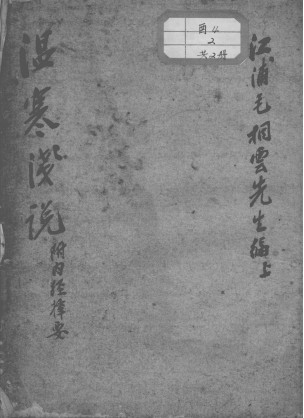 江浦毛桐雲先生编上
温寒淺說
附内經擇要
2
共2册